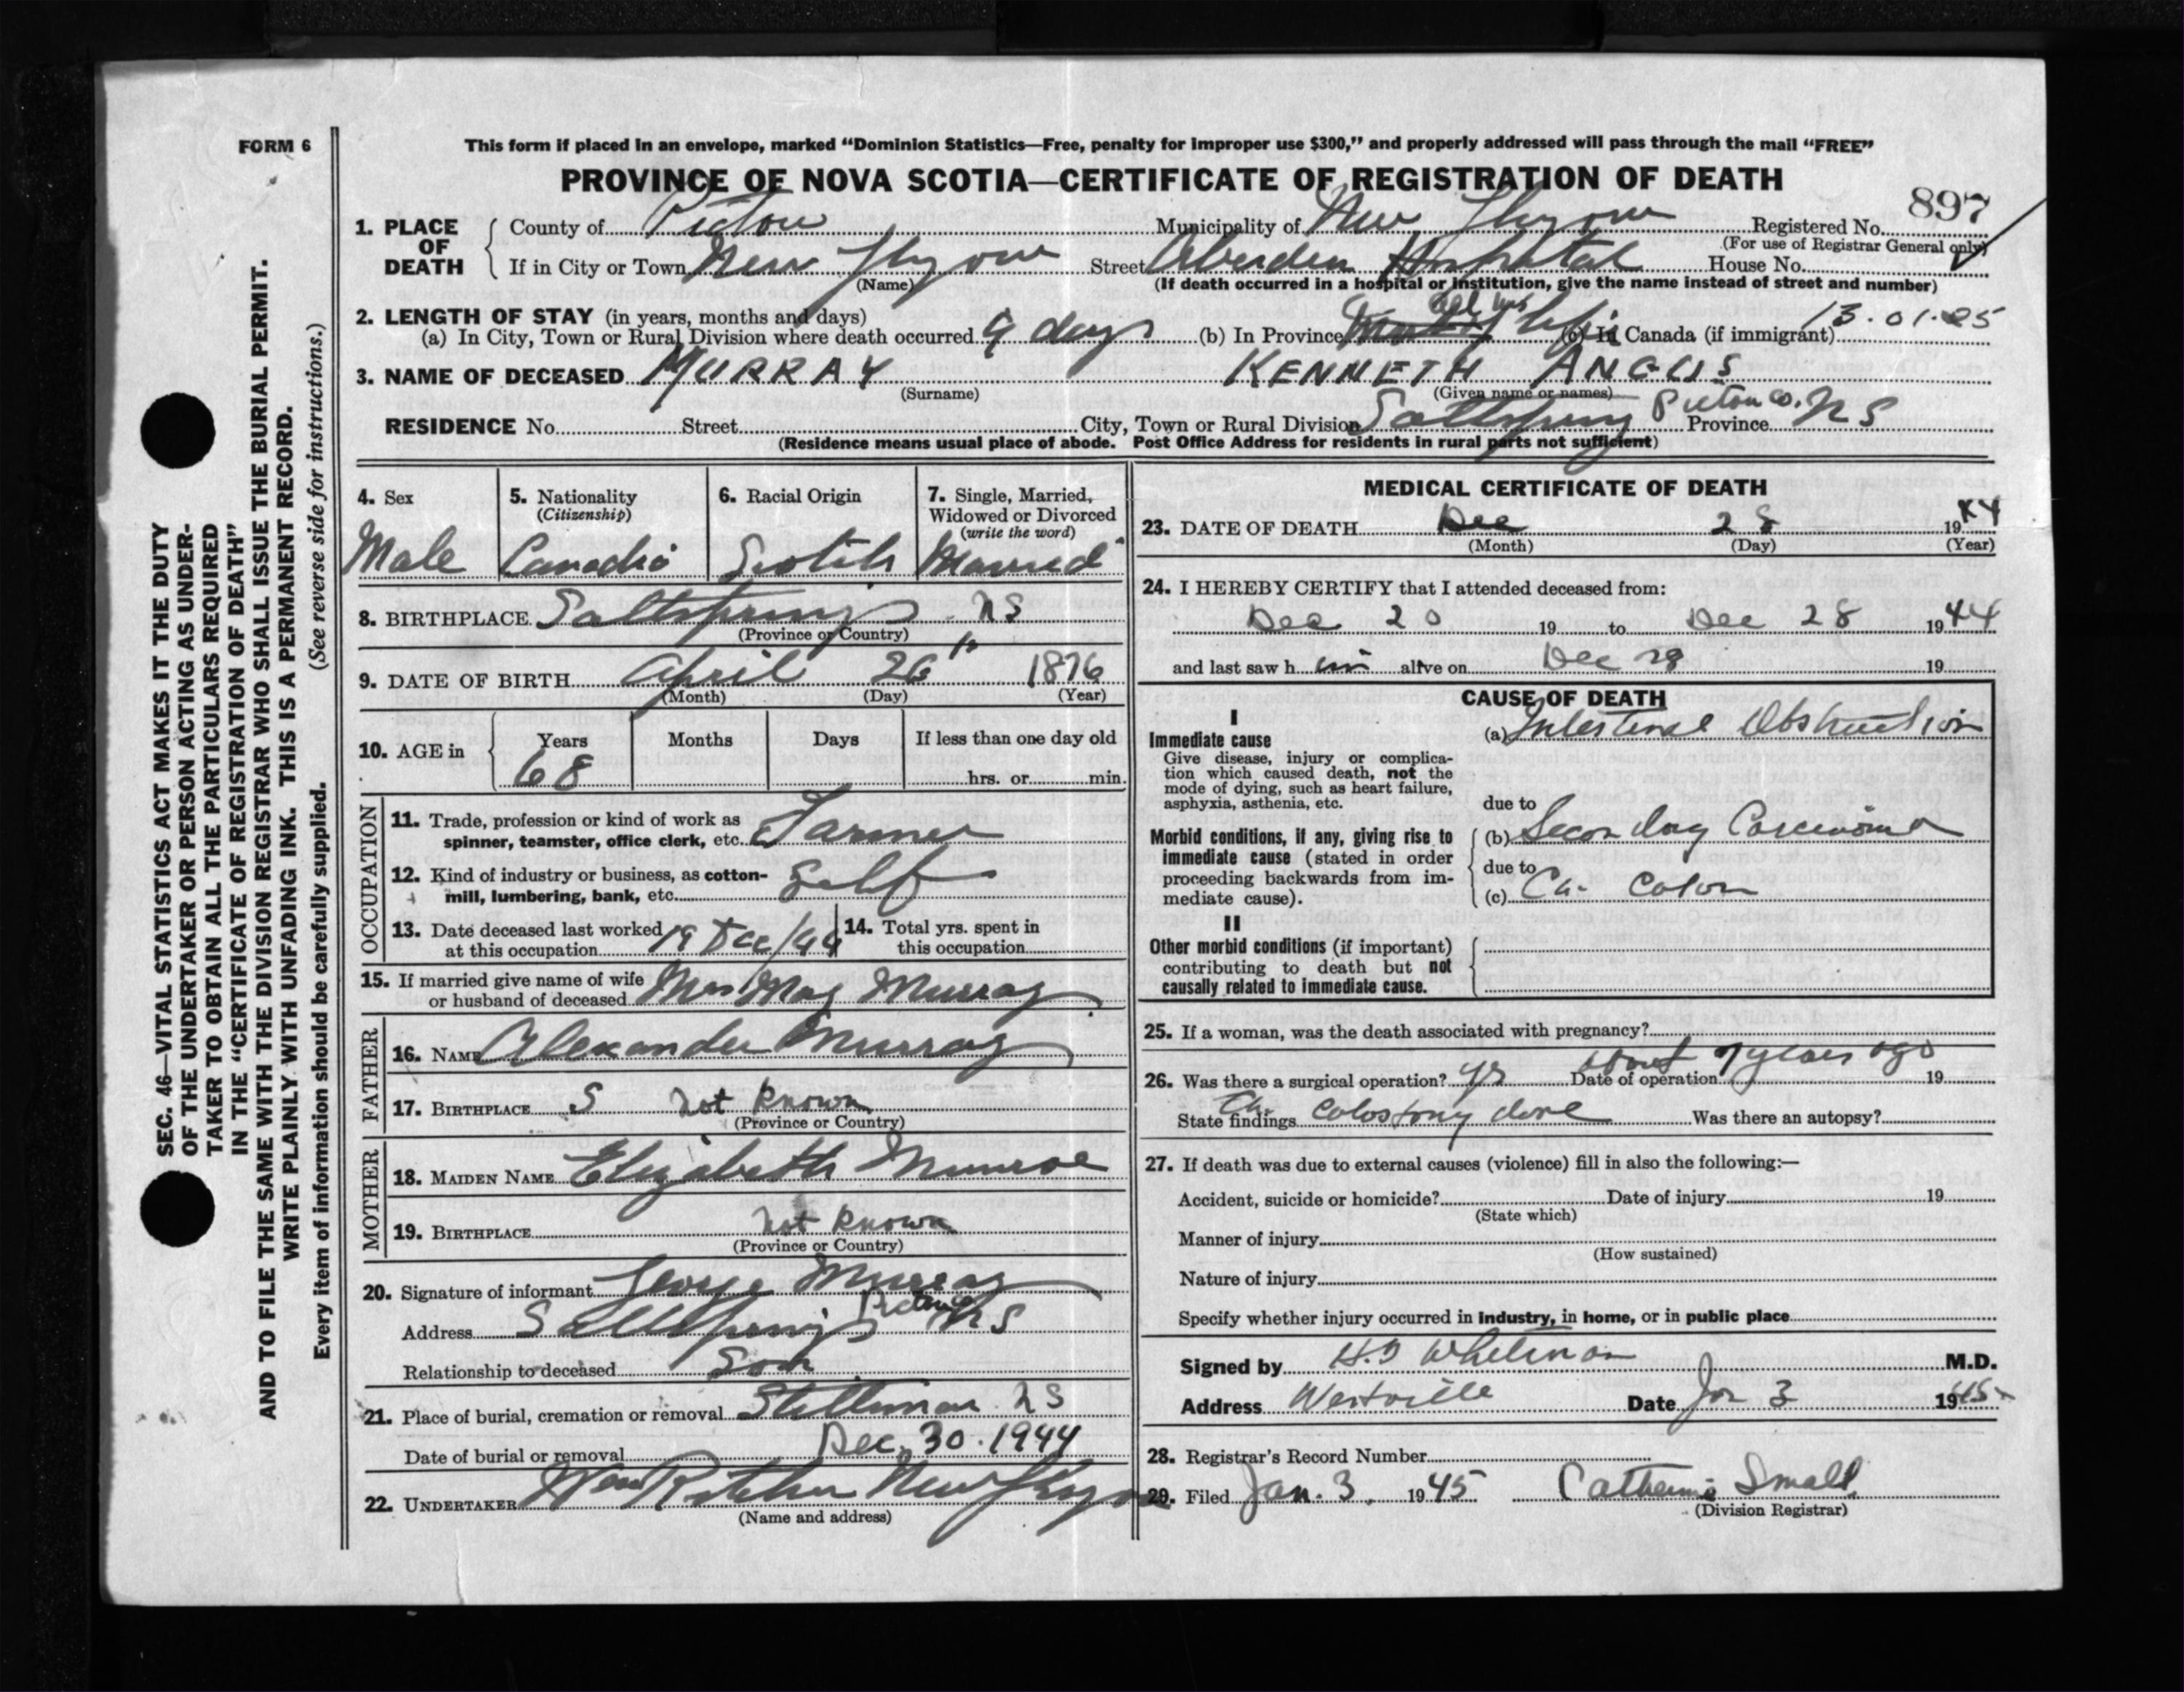 FORM 6
This form if placed in an envelope, marked “Dominion Statistics—Free, penalty for improper use $300,” and properly addressed will pass through the mail “FREE”
PROVINCE OF NOVA SCOTIA—CERTIFICATE OF REGISTRATION OF DEATH
897
1. PLACE OF DEATH
County of Pictou Municipality of New Glasgow Registered No.
(For use of Registrar General only)
If in City or Town New Glasgow Street Aberdeen Hospital House No.
(Name) (If death occurred in a hospital or institution, give the name instead of street and number)
2. LENGTH OF STAY (in years, months and days)
13.01.25
(a) In City, Town or Rural Division where death occurred 9 days (b) In Province all his life (c) In Canada (if immigrant)
3. NAME OF DECEASED MURRAY KENNETH ANGUS
(Surname) (Given name or names)
RESIDENCE No. Street City, Town or Rural Division Saltsprings Pictou Co. Province NS
(Residence means usual place of abode. Post Office Address for residents in rural parts not sufficient)
4. Sex
Male
5. Nationality
(Citizenship)
6. Racial Origin
Scotch
7. Single, Married,
Widowed or Divorced
(write the word)
Married
8. BIRTHPLACE Saltsprings NS
(Province or Country)
9. DATE OF BIRTH April 26th 1876
(Month) (Day) (Year)
10. AGE in
Years Months Days If less than one day old
68
hrs. or min.
OCCUPATION
11. Trade, profession or kind of work as
spinner, teamster, office clerk, etc. Farmer
12. Kind of industry or business, as cotton-
mill, lumbering, bank, etc. Self
13. Date deceased last worked
at this occupation 19 Dec/44
14. Total yrs. spent in
this occupation
15. If married give name of wife
or husband of deceased Mrs May Murray
FATHER
16. NAME Alexander Murray
17. BIRTHPLACE S not known
(Province or Country)
MOTHER
18. MAIDEN NAME Elizabeth Munroe
19. BIRTHPLACE not known
(Province or Country)
20. Signature of informant George Murray
Address Saltsprings Pictou Co NS
Relationship to deceased Son
21. Place of burial, cremation or removal NS
Date of burial or removal Dec. 30. 1944
22. UNDERTAKER New Glasgow
(Name and address)
MEDICAL CERTIFICATE OF DEATH
23. DATE OF DEATH Dec 28 1944
(Month) (Day) (Year)
24. I HEREBY CERTIFY that I attended deceased from:
Dec 20 19 to Dec 28 1944
and last saw h im alive on Dec 28 19
CAUSE OF DEATH
I
Immediate cause
Give disease, injury or complica-
tion which caused death, not the
mode of dying, such as heart failure,
asphyxia, asthenia, etc.
(a) Intestinal Obstruction
due to
Morbid conditions, if any, giving rise to
immediate cause (stated in order
proceeding backwards from im-
mediate cause).
(b) Secondary Carcinoma
due to
(c) Ca. Colon
II
Other morbid conditions (if important)
contributing to death but not
causally related to immediate cause.
25. If a woman, was the death associated with pregnancy?
26. Was there a surgical operation? yes Date of operation about 7 years ago 19
State findings Colostomy done Was there an autopsy?
27. If death was due to external causes (violence) fill in also the following:—
Accident, suicide or homicide? Date of injury 19
(State which)
Manner of injury
(How sustained)
Nature of injury
Specify whether injury occurred in industry, in home, or in public place
Signed by Whitman M.D.
Address Westville Date Jan 3 1945
28. Registrar’s Record Number
29. Filed Jan. 3. 1945 Catherine Small
(Division Registrar)
SEC. 46—VITAL STATISTICS ACT MAKES IT THE DUTY
OF THE UNDERTAKER OR PERSON ACTING AS UNDER-
TAKER TO OBTAIN ALL THE PARTICULARS REQUIRED
IN THE “CERTIFICATE OF REGISTRATION OF DEATH”
AND TO FILE THE SAME WITH THE DIVISION REGISTRAR WHO SHALL ISSUE THE BURIAL PERMIT.
WRITE PLAINLY WITH UNFADING INK. THIS IS A PERMANENT RECORD.
Every item of information should be carefully supplied. (See reverse side for instructions.)